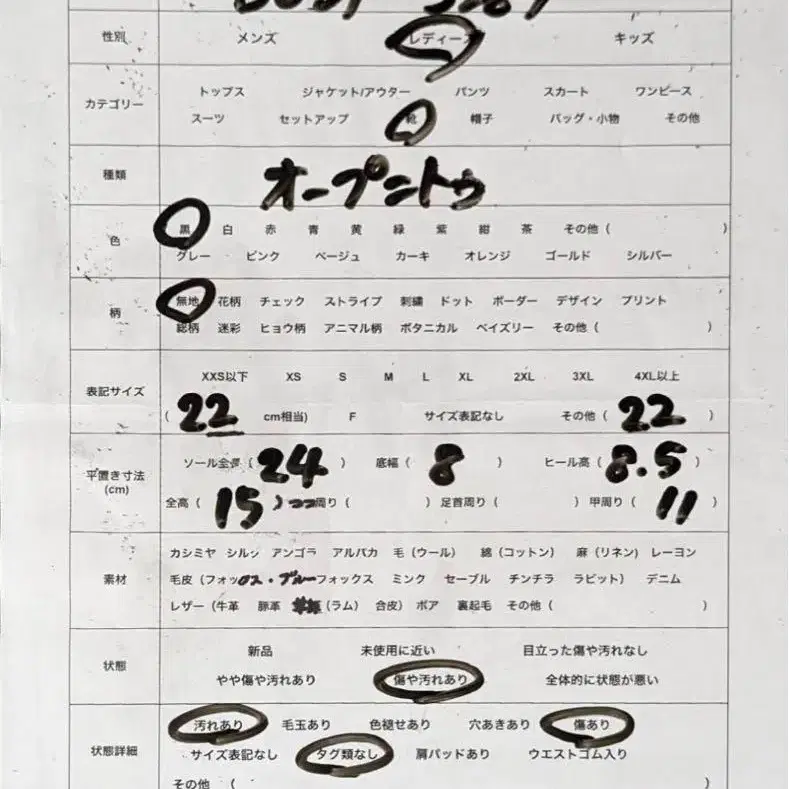 性別 メンズ レディース キッズ
カテゴリー
トップス ジャケット/アウター パンツ スカート ワンピース
スーツ セットアップ 靴 帽子 バッグ・小物 その他
種類 オープントゥ
色
黒 白 赤 青 黄 緑 紫 紺 茶 その他 ( )
グレー ピンク ベージュ カーキ オレンジ ゴールド シルバー
柄
無地 花柄 チェック ストライプ 刺繍 ドット ボーダー デザイン プリント
総柄 迷彩 ヒョウ柄 アニマル柄 ボタニカル ペイズリー その他 ( )
表記サイズ
XXS以下 XS S M L XL 2XL 3XL 4XL以上
( 22 cm相当) F サイズ表記なし その他 ( 22 )
平置き寸法
(cm)
ソール全長 ( 24 ) 底幅 ( 8 ) ヒール高 ( 8.5 )
全高 ( 15 ) 周り ( ) 足首周り ( ) 甲周り ( 11 )
素材
カシミヤ シルク アンゴラ アルパカ 毛 (ウール) 綿 (コットン) 麻 (リネン) レーヨン
毛皮 (フォックス・ブルーフォックス ミンク セーブル チンチラ ラビット) デニム
レザー (牛革 豚革 (ラム) 合皮) ボア 裏起毛 その他 ( )
状態
新品 未使用に近い 目立った傷や汚れなし
やや傷や汚れあり 傷や汚れあり 全体的に状態が悪い
状態詳細
汚れあり 毛玉あり 色褪せあり 穴あきあり 傷あり
サイズ表記なし タグ類なし 肩パッドあり ウエストゴム入り
その他 ( )